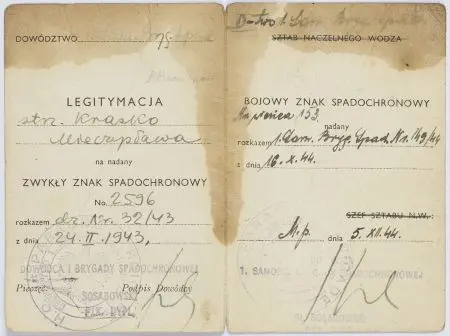 DOWÓDZTWO
LEGITYMACJA
strz. Kraśko
Mieczysława
na nadany
ZWYKŁY ZNAK SPADOCHRONOWY
No. 2596
rozkazem dz. Nr. 32/43
z dnia 24.II.1943.
DOWÓDCA 1 BRYGADY SPADOCHRONOWEJ
Pieczęć Podpis Dowódcy
SOSABOWSKI
PŁK. DYPL.
D-two 1. Sam. Bryg. Spad.
SZTAB NACZELNEGO WODZA
BOJOWY ZNAK SPADOCHRONOWY
153
nadany
rozkazem 1. Sam. Bryg. Spad. Nr. 149/44
z dnia 16.X.44.
SZEF SZTABU N.W.
M.p. dnia 5.XII.44.
SPADOCHRONOWEJ